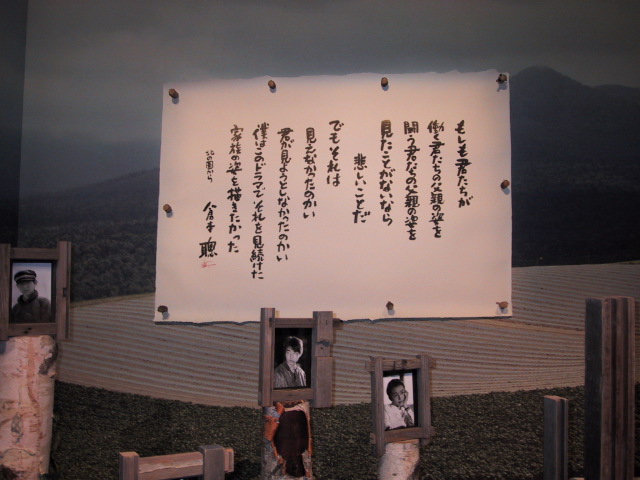 もしも君たちが
働く君たちの父親の姿を
闘う君たちの父親の姿を
見たことがないなら
悲しいことだ
でもそれは
見えなかったのかい
君が見ようとしなかったのかい
僕はこのドラマでそれを見続けた
家族の姿を描きたかった
北の国から
倉本 聰